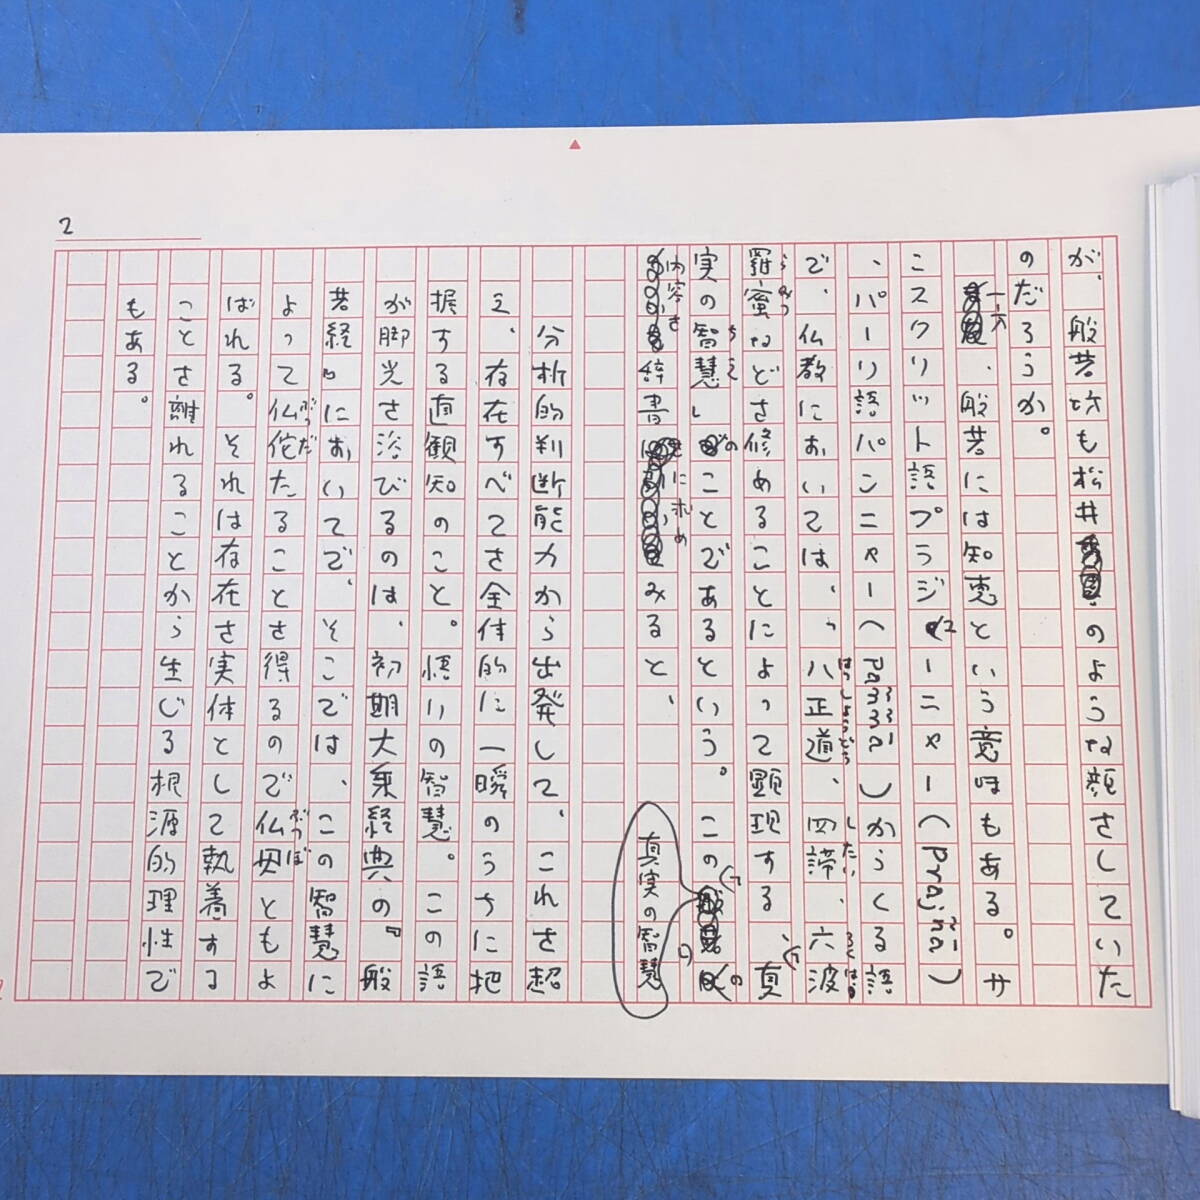 2
が、般若坊も松井のような顔をしていた
のだろうか。
一方、般若には知恵という意味もある。サ
ンスクリット語プラジュニャー(Prajñā)
、パーリ語パンニャー(Paññā)からくる語
で、仏教においては、、八正道、四諦、六波
羅蜜などを修めることによって顕現する「真
実の智慧」のことであるという。この「真実の智慧」の
内容を辞書に求めみると、
分析的判断能力から出発して、これを超
え、存在すべてを全体的に一瞬のうちに把
握する直観知のこと。悟りの智慧。この語
が脚光を浴びるのは、初期大乗経典の『般
若経』においてで、そこでは、この智慧に
よって仏陀たることを得るので仏母ともよ
ばれる。それは存在を実体として執着する
ことを離れることから生じる根源的理性で
もある。